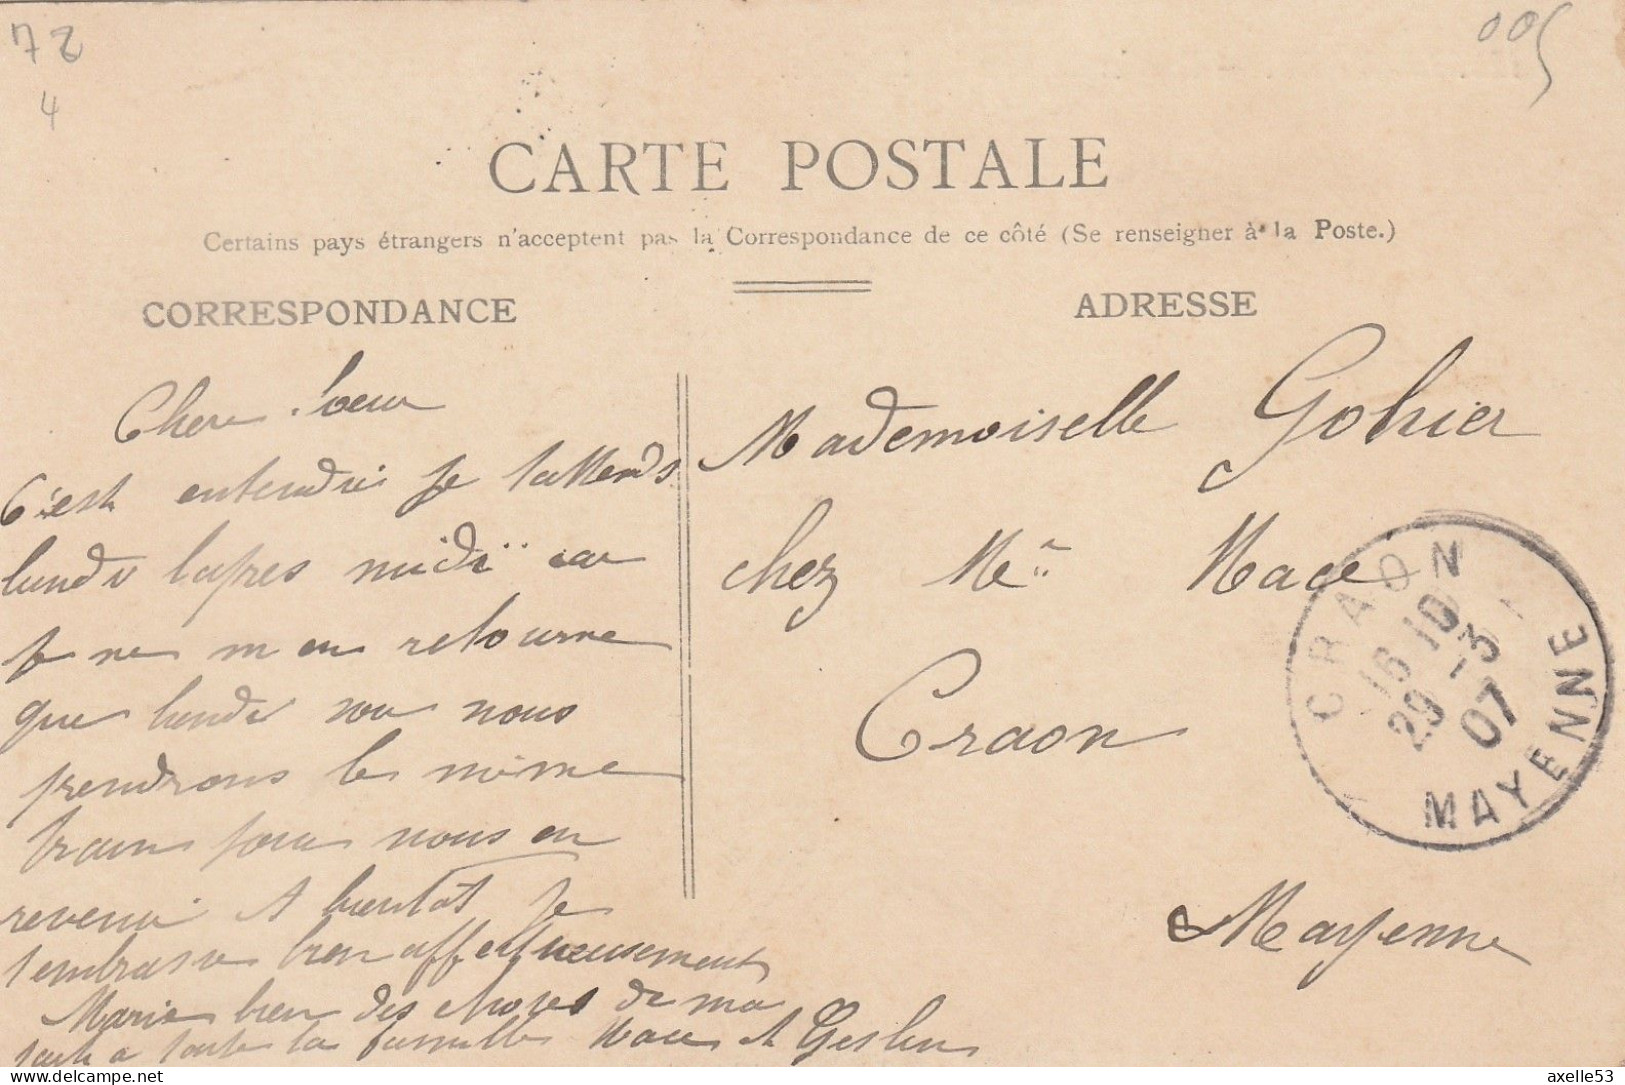 72
4
005
CARTE POSTALE
Certains pays étrangers n'acceptent pas la Correspondance de ce côté (Se renseigner à la Poste.)
CORRESPONDANCE
ADRESSE
Chere Soeur
C'est entendu je t'attends
lundi l'apres midi car
je ne m'en retourne
que lundi nous
prendrons le même
train pour nous en
revenir A bientôt Je
t'embrasse bien affectueusement
Marie bien des choses de ma
part a toute la famille Mace et Geslin
Mademoiselle Gohier
chez Me Mace
Craon
Mayenne
CRAON
16 10
29 -3
07
MAYENNE
axelle53